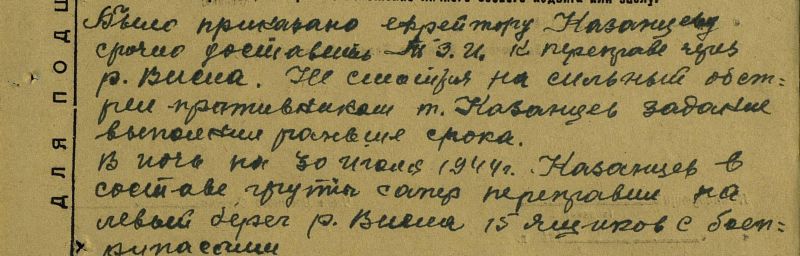 Было приказано ефрейтору Казанцеву
срочно доставить Т.З.И. к переправе через
р. Висла. Не смотря на сильный обст-
рел противником т. Казанцев задание
выполнил раньше срока.
В ночь на 30 июля 1944г. Казанцев в
составе группы сапер переправил на
левый берег р. Висла 15 ящиков с боеп-
рипасами
ДЛЯ ПОДШ